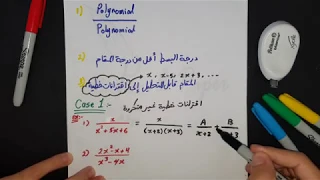 1) Polynomial
Polynomial
2) درجة البسط أقل من درجة المقام
x, x-5, 2x+3, ...
3) المقام قابل للتحليل إلى اقترانات خطية
Case 1 :- اقترانات خطية غير مكررة
ex:- 1) x / x²+5x+6 = x / (x+2)(x+3) = A / x+2 + B / x+3
2) 2x²-x+4 / x³-4x